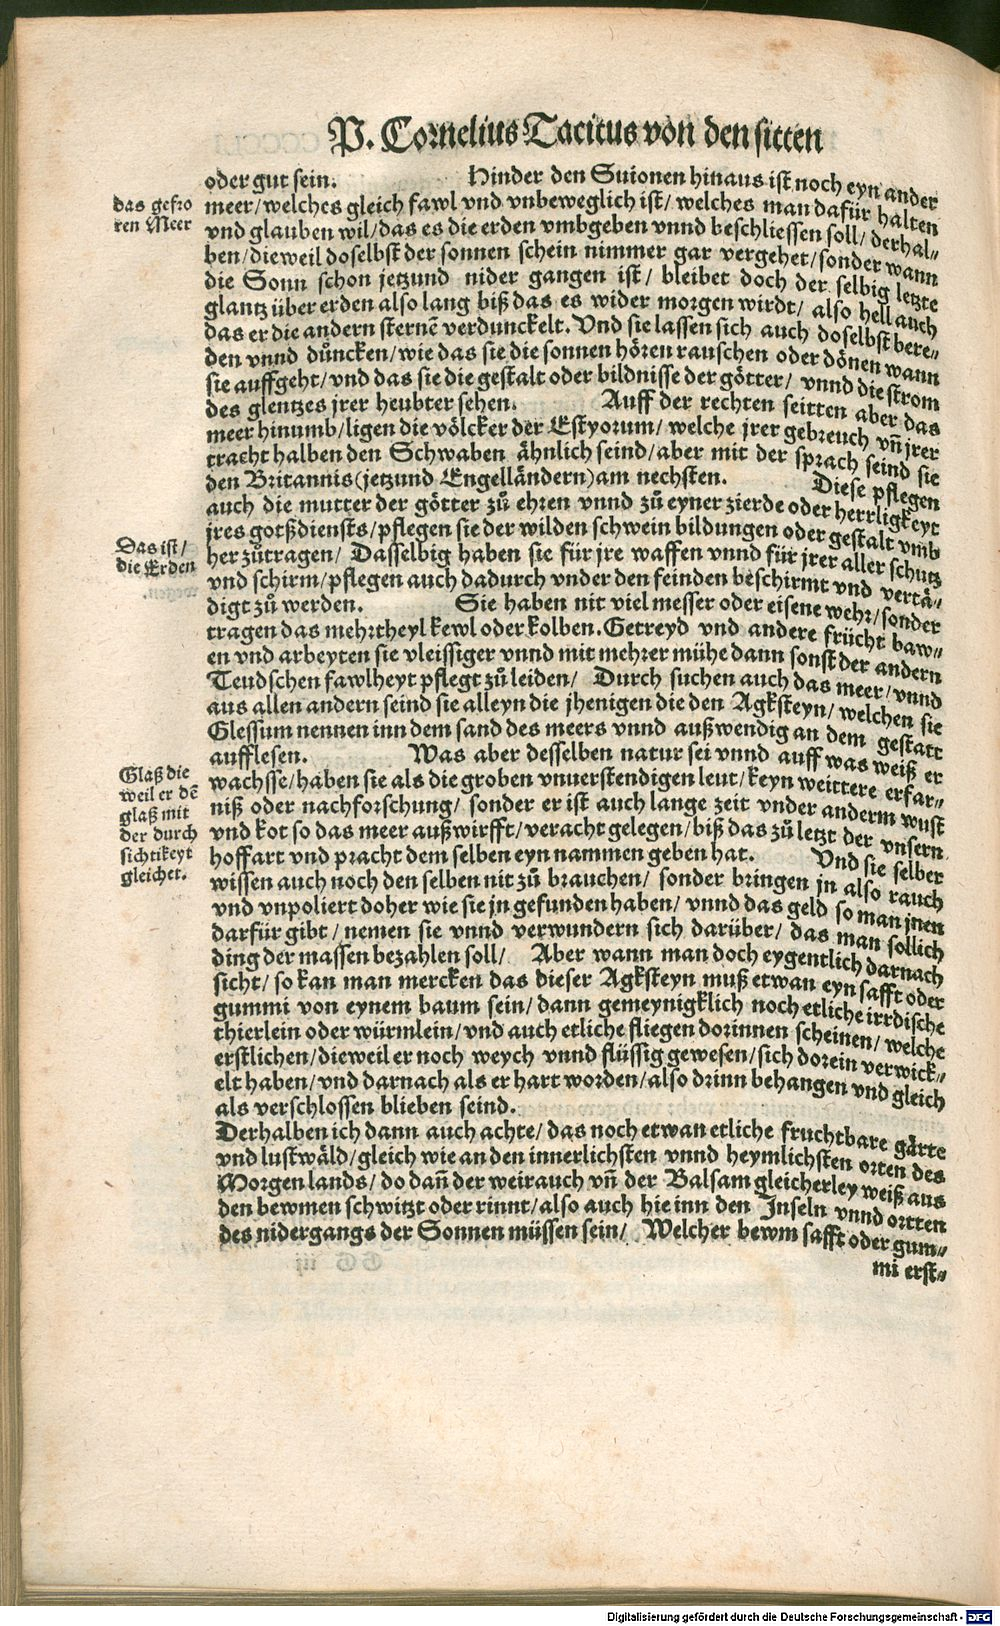 P. Cornelius Tacitus von den sitten
oder gut sein. Hinder den Suionen hinaus ist noch eyn ander
das gefro
ren Meer
meer/welches gleich fawl vnd vnbeweglich ist/ welches man dafür halten
vnd glauben wil/das es die erden vmbgeben vnnd beschliessen soll/ derhal⸗
ben/dieweil doselbst der sonnen schein nimmer gar vergehet/sonder wann
die Sonn schon jetzund nider gangen ist/ bleibet doch der selbig letzte
glantz über erden also lang biß das es wider morgen wirdt/ also hell auch
das er die andern sternē verdunckelt. Vnd sie lassen sich auch doselbst bere⸗
den vnnd důncken/wie das sie die sonnen hören rauschen oder dönen wann
sie auffgeht/vnd das sie die gestalt oder bildnisse der götter/ vnnd die strom
des glentzes jrer heubter sehen. Auff der rechten seitten aber das
meer hinumb/ligen die völcker der Estyorum/ welche jrer gebreuch vñ jrer
tracht halben den Schwaben ähnlich seind/aber mit der sprach seind sie
den Britannis(jetzund Engelländern)am nechsten. Diese pflegen
auch die mutter der götter zů ehren vnnd zů eyner zierde oder herrligkeyt
jres gotßdiensts/pflegen sie der wilden schwein bildungen oder gestalt vmb
Das ist/
die Erden
her zůtragen/ Dasselbig haben sie für jre waffen vnnd für jrer aller schutz
vnd schirm/pflegen auch dadurch vnder den feinden beschirmt vnd vertä⸗
digt zů werden. Sie haben nit viel messer oder eisene wehr/sonder
tragen das mehrtheyl kewl oder kolben. Getreyd vnd andere frücht baw⸗
en vnd arbeyten sie vleissiger vnnd mit mehrer mühe dann sonst der andern
Teudschen fawlheyt pflegt zů leiden/ Durch suchen auch das meer/vnnd
aus allen andern seind sie alleyn die jhenigen die den Agksteyn/ welchen sie
Glessum nennen inn dem sand des meers vnnd außwendig an dem gestatt
aufflesen. Was aber desselben natur sei vnnd auff was weiß er
Glaß die
weil er dē
glaß mit
der durch
sichtikeyt
gleichet.
wachsse/haben sie als die groben vnuerstendigen leut/ keyn weittere erfar⸗
niß oder nachforschung/ sonder er ist auch lange zeit vnder anderm wust
vnd kot so das meer außwirfft/veracht gelegen/biß das zů letzt der vnsern
hoffart vnd pracht dem selben eyn nammen geben hat. Vnd sie selber
wissen auch noch den selben nit zů brauchen/ sonder bringen jn also rauch
vnd vnpoliert doher wie sie jn gefunden haben/ vnnd das geld so man jnen
darfür gibt/ nemen sie vnnd verwundern sich darüber/ das man sollich
ding der massen bezahlen soll/ Aber wann man doch eygentlich darnach
sicht/ so kan man mercken das dieser Agksteyn muß etwan eyn safft oder
gummi von eynem baum sein/ dann gemeynigklich noch etliche irrdische
thierlein oder würmlein/vnd auch etliche fliegen dorinnen scheinen/ welche
erstlichen/dieweil er noch weych vnnd flüssig gewesen/sich dorein verwick⸗
elt haben/vnd darnach als er hart worden/also drinn behangen vnd gleich
als verschlossen blieben seind.
Derhalben ich dann auch achte/ das noch etwan etliche fruchtbare gärte
vnd lustwäld/gleich wie an den innerlichsten vnnd heymlichsten orten des
Morgenlands/ do dañ der weirauch vñ der Balsam gleicherley weiß aus
den bewmen schwitzt oder rinnt/also auch hie inn den Inseln vnnd ortten
des nidergangs der Sonnen müssen sein/ Welcher bewm safft oder gum⸗
mi erst⸗
Digitalisierung gefördert durch die Deutsche Forschungsgemeinschaft - DFG